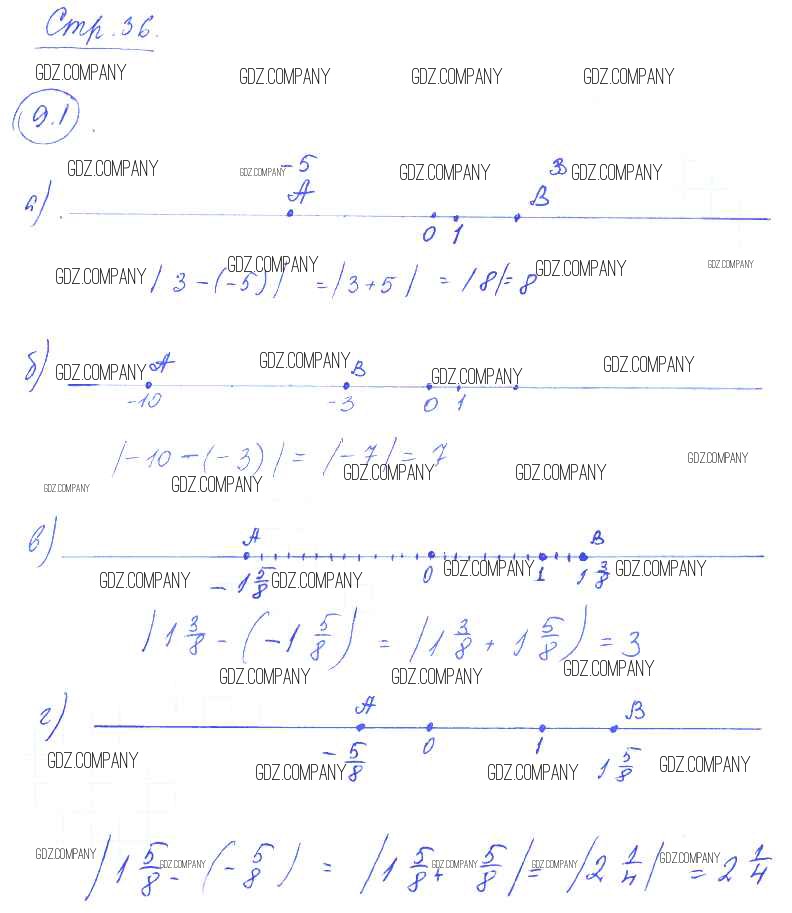 Стр. 36.
GDZ.COMPANY GDZ.COMPANY GDZ.COMPANY GDZ.COMPANY
9.1
GDZ.COMPANY GDZ.COMPANY -5 GDZ.COMPANY В GDZ.COMPANY
а) А В
0 1
GDZ.COMPANY GDZ.COMPANY GDZ.COMPANY GDZ.COMPANY
|3-(-5)| = |3+5| = |8| = 8
б) GDZ.COMPANY А GDZ.COMPANY В GDZ.COMPANY GDZ.COMPANY
-10 -3 0 1
|-10-(-3)| = |-7| = 7 GDZ.COMPANY
GDZ.COMPANY GDZ.COMPANY GDZ.COMPANY GDZ.COMPANY
в) А В
-1 5/8 0 1 1 3/8
GDZ.COMPANY GDZ.COMPANY GDZ.COMPANY GDZ.COMPANY
|1 3/8 - (-1 5/8)| = |1 3/8 + 1 5/8| = 3
GDZ.COMPANY GDZ.COMPANY GDZ.COMPANY
г) А В
-5/8 0 1 1 5/8
GDZ.COMPANY GDZ.COMPANY GDZ.COMPANY GDZ.COMPANY
GDZ.COMPANY GDZ.COMPANY GDZ.COMPANY GDZ.COMPANY GDZ.COMPANY
|1 5/8 - (-5/8)| = |1 5/8 + 5/8| = |2 1/4| = 2 1/4